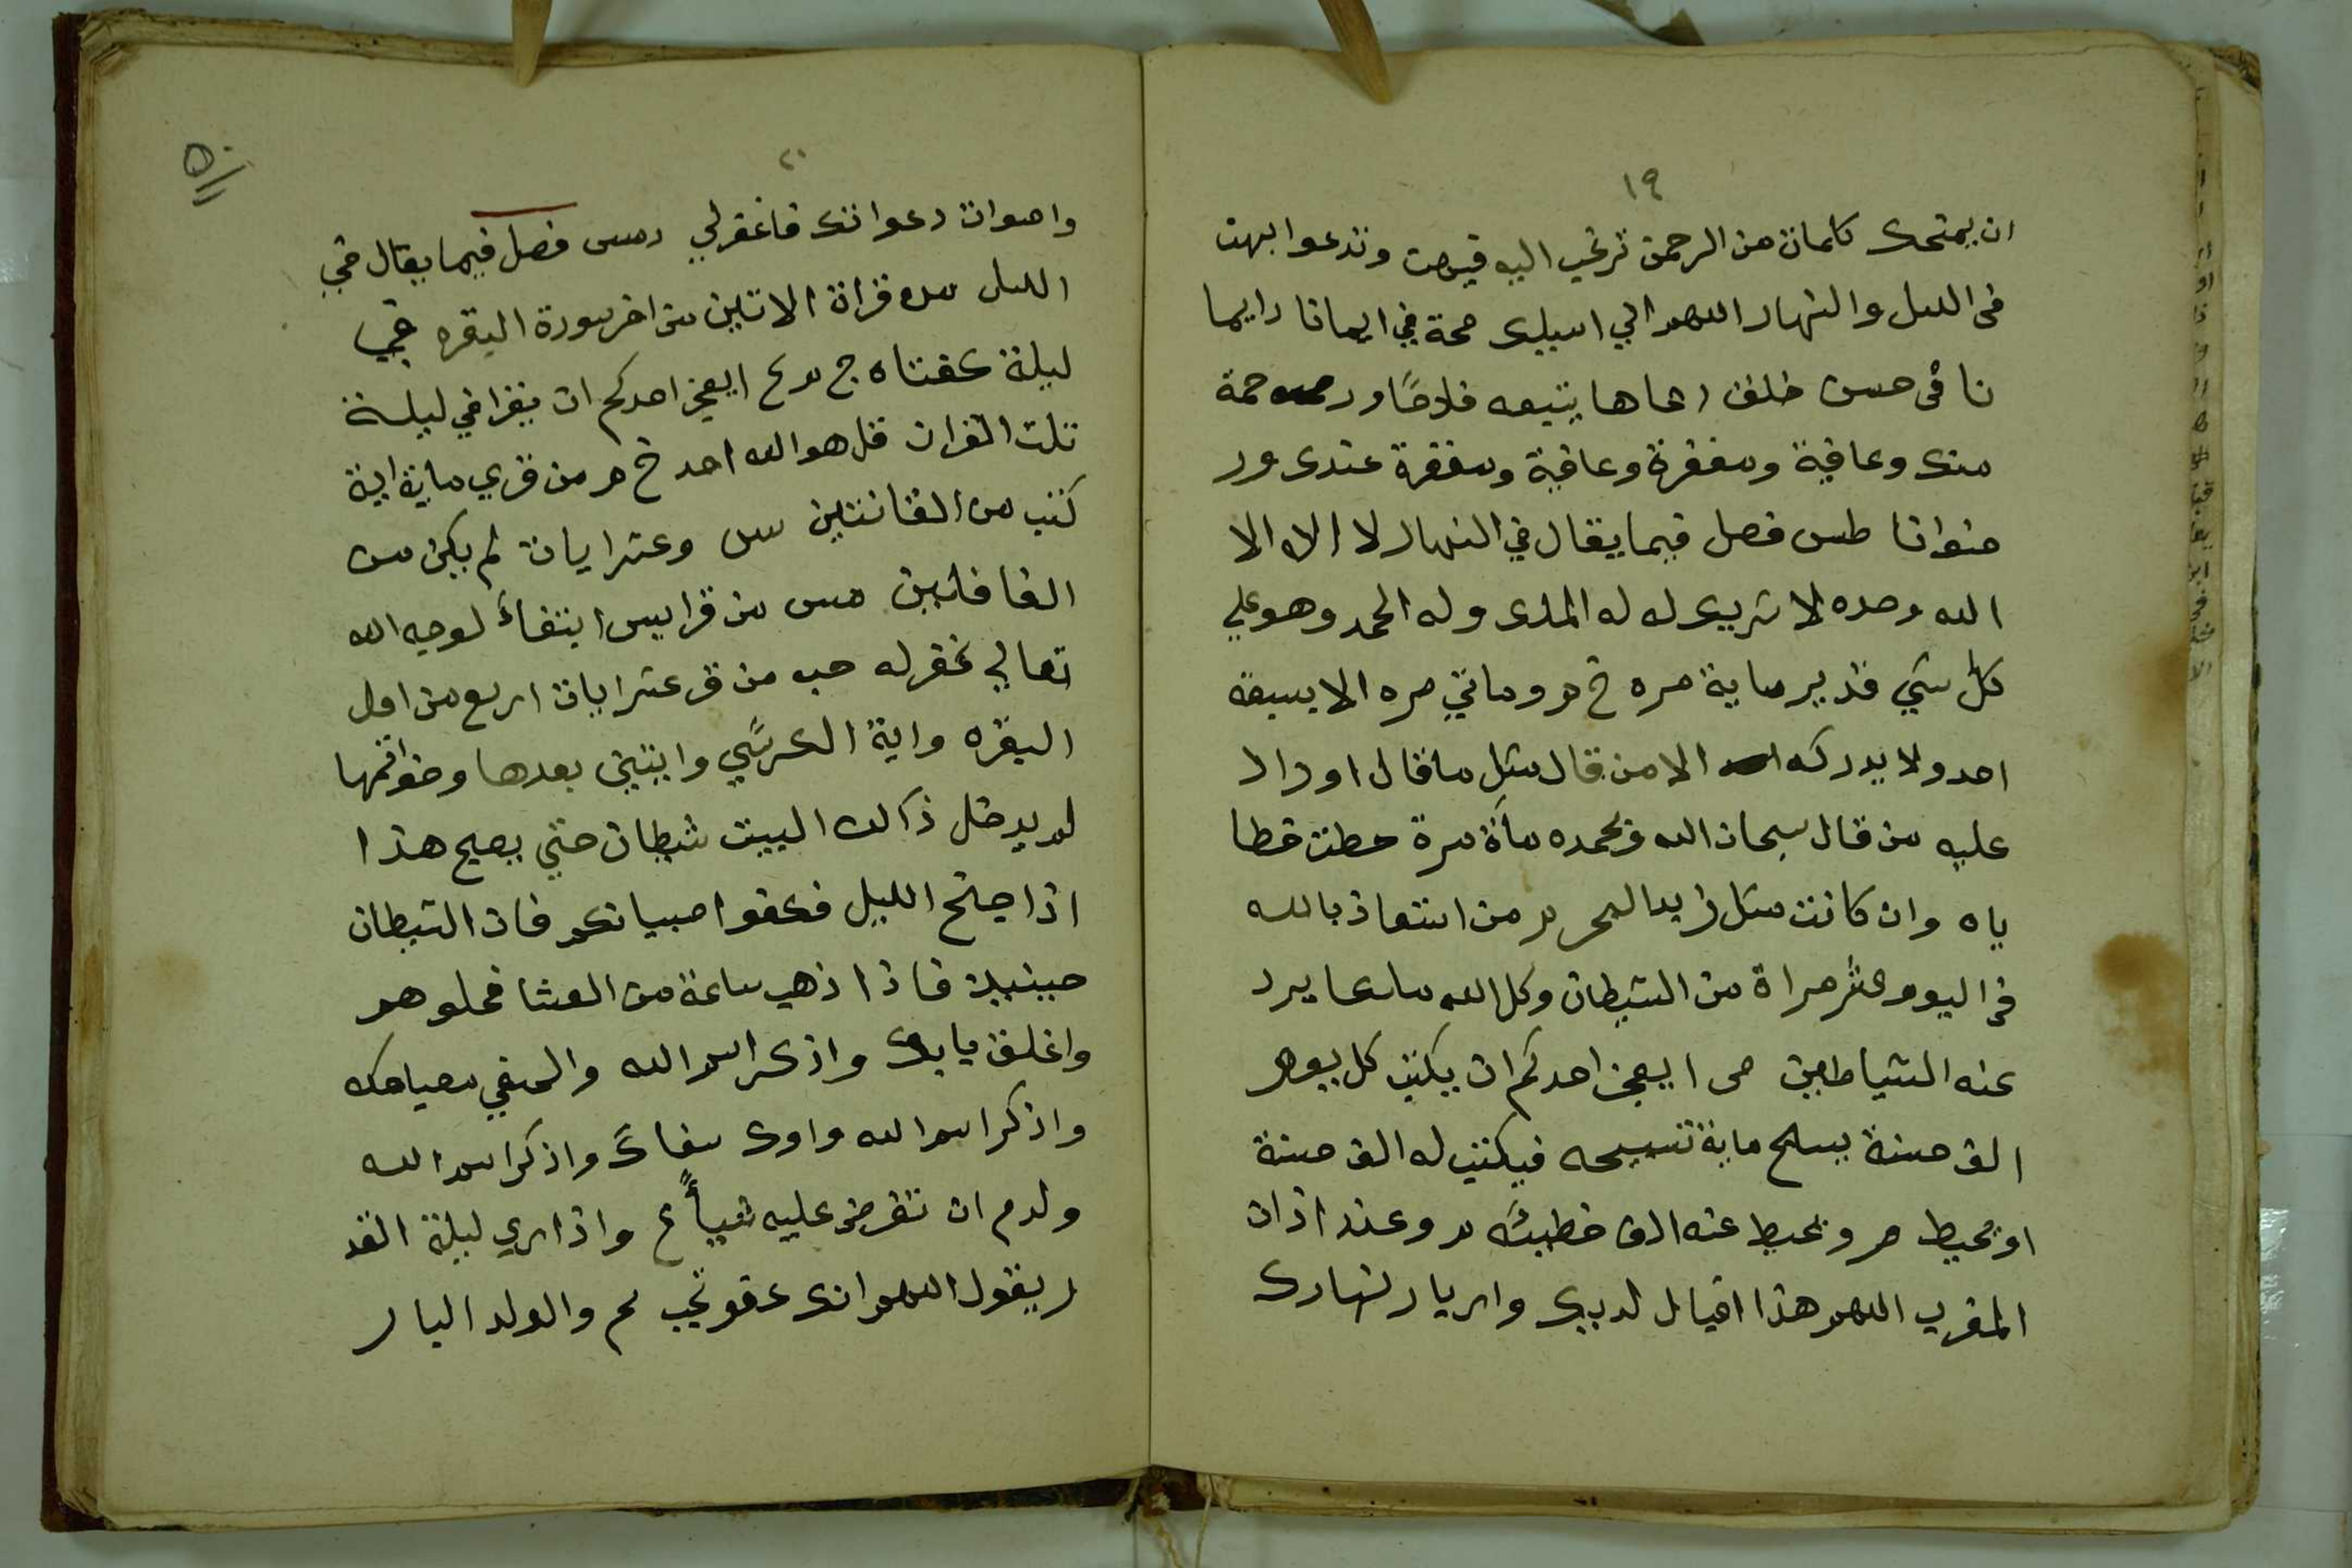 ١٩
ان يمتحك كلمات من الرحمن ترغب اليه فيهن وتدعوا بهن
في الليل والنهار اللهم اني اسيلك صحة في ايمانا دايما
نا في حسن خلق رعاها يتبعه فلاحًا ورحمة
منك وعافية ومغفرة وعافية ومغفرة عندك ور
ضوانا طس فصل فيما يقال في النهار لا اله الا
الله وحده لا شريك له له الملك وله الحمد وهو علي
كل شي قدير ماية مره خ م وماتي مره الا يسبقه
احد ولا يدركه الا من قال مثل ما قال او زاد
عليه من قال سبحان الله وبحمده مأة مرة حطت خطا
ياه وان كانت مثل زبد البحر م من استعاذ بالله
في اليوم عشر مراة من الشيطان وكل الله يرد
عنه الشياطين ص ايعجز احدكم ان يكتب كل يوم
الف حسنة يسبح ماية تسبيحه فيكتب له الف حسنة
او يحيط م و يحيط عنه الف خطيئه م وعند اذان
المغرب اللهم هذا اقبال ليلك وادبار نهارك
٢٠
٥٠
واصوات دعواتك فاغفرلي دمس فصل فيما يقال في
الليل قراة الاتين من اخر سورة البقره في
ليلة كفتاه ج ايعجز احدكم ان يقرا في ليلة
ثلث القران قل هو الله احد خ م من قري ماية اية
كتب من القانتين وعشر ايات لم يكن من
الغافلين مس من قرا يس ابتغاءً لوجه الله
تعالي غفر له حب من قر عشر ايات اربع من اول
البقره واية الكرسي وايتين بعدها وخواتمها
لم يدخل ذالك البيت شيطان حتي يصبح هذا
اذا جنح الليل فكفوا صبيانكم فان الشيطان
حينيذ فاذا ذهب ساعة من العشا فخلوهم
واغلق بابك واذكر اسم الله والطفي مصباحك
واذكر اسم الله واوك سقاك واذكر اسم الله
ولو ان تقرض عليه شيأ ع واذا ري ليلة القد
ر يقول اللهم انك عفو تحب والولد البار